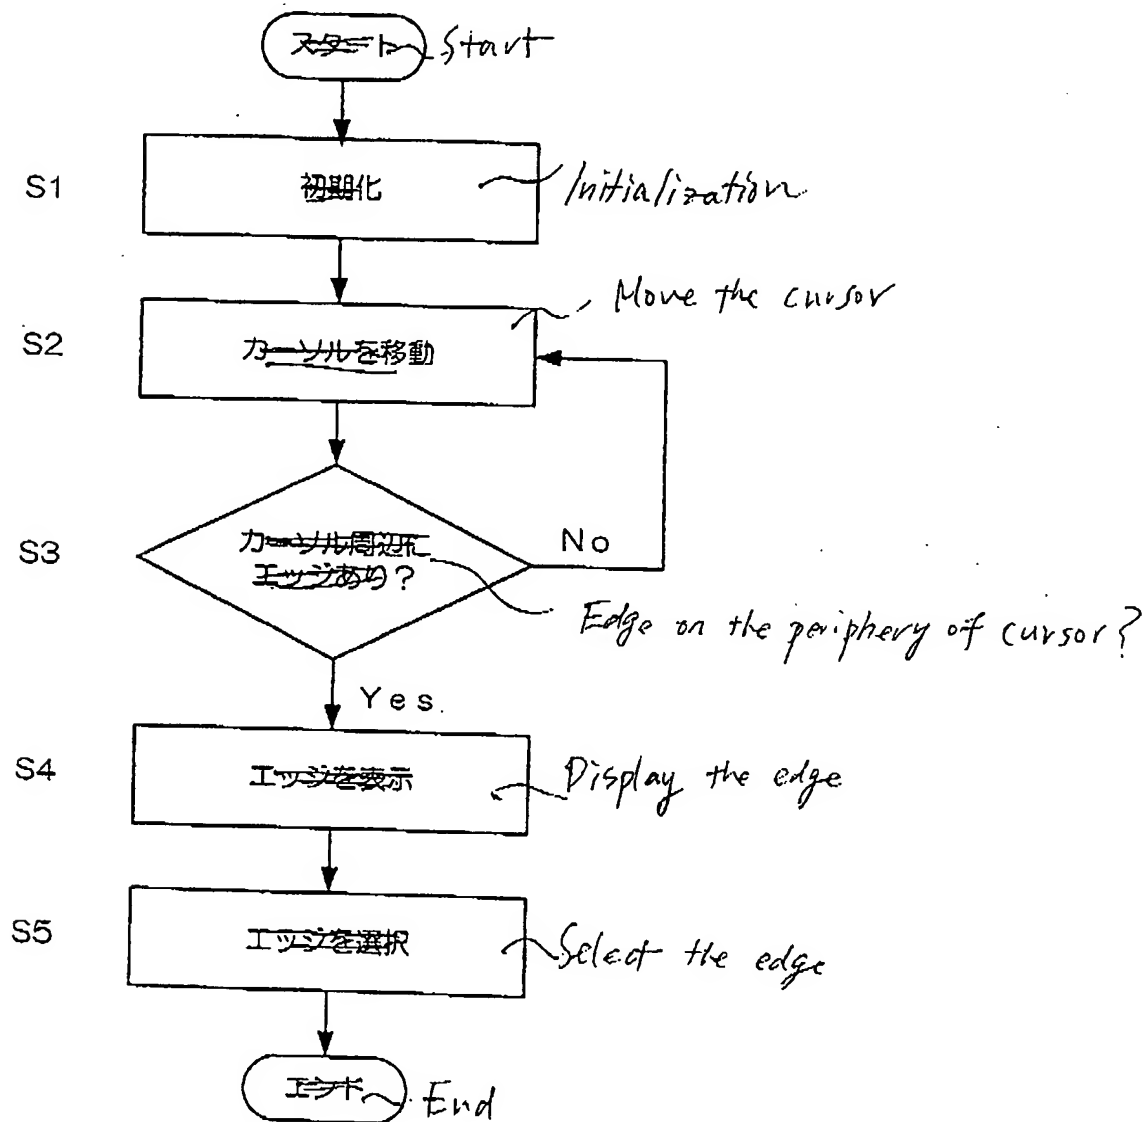 スタート Start
S1 初期化 Initialization
Move the cursor
S2 カーソルを移動
S3 カーソル周辺に No
エッジあり?
Edge on the periphery of cursor?
Yes.
S4 エッジを表示 Display the edge
S5 エッジを選択 Select the edge
エンド End